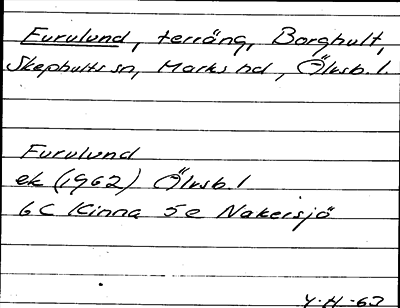 Furulund, terräng, Borghult,
Skephults sn, Marks hd, Älvsb. l.
Furulund
ek (1962) Älvsb. l
6C Kinna 5e Nakersjö
Y.H-63